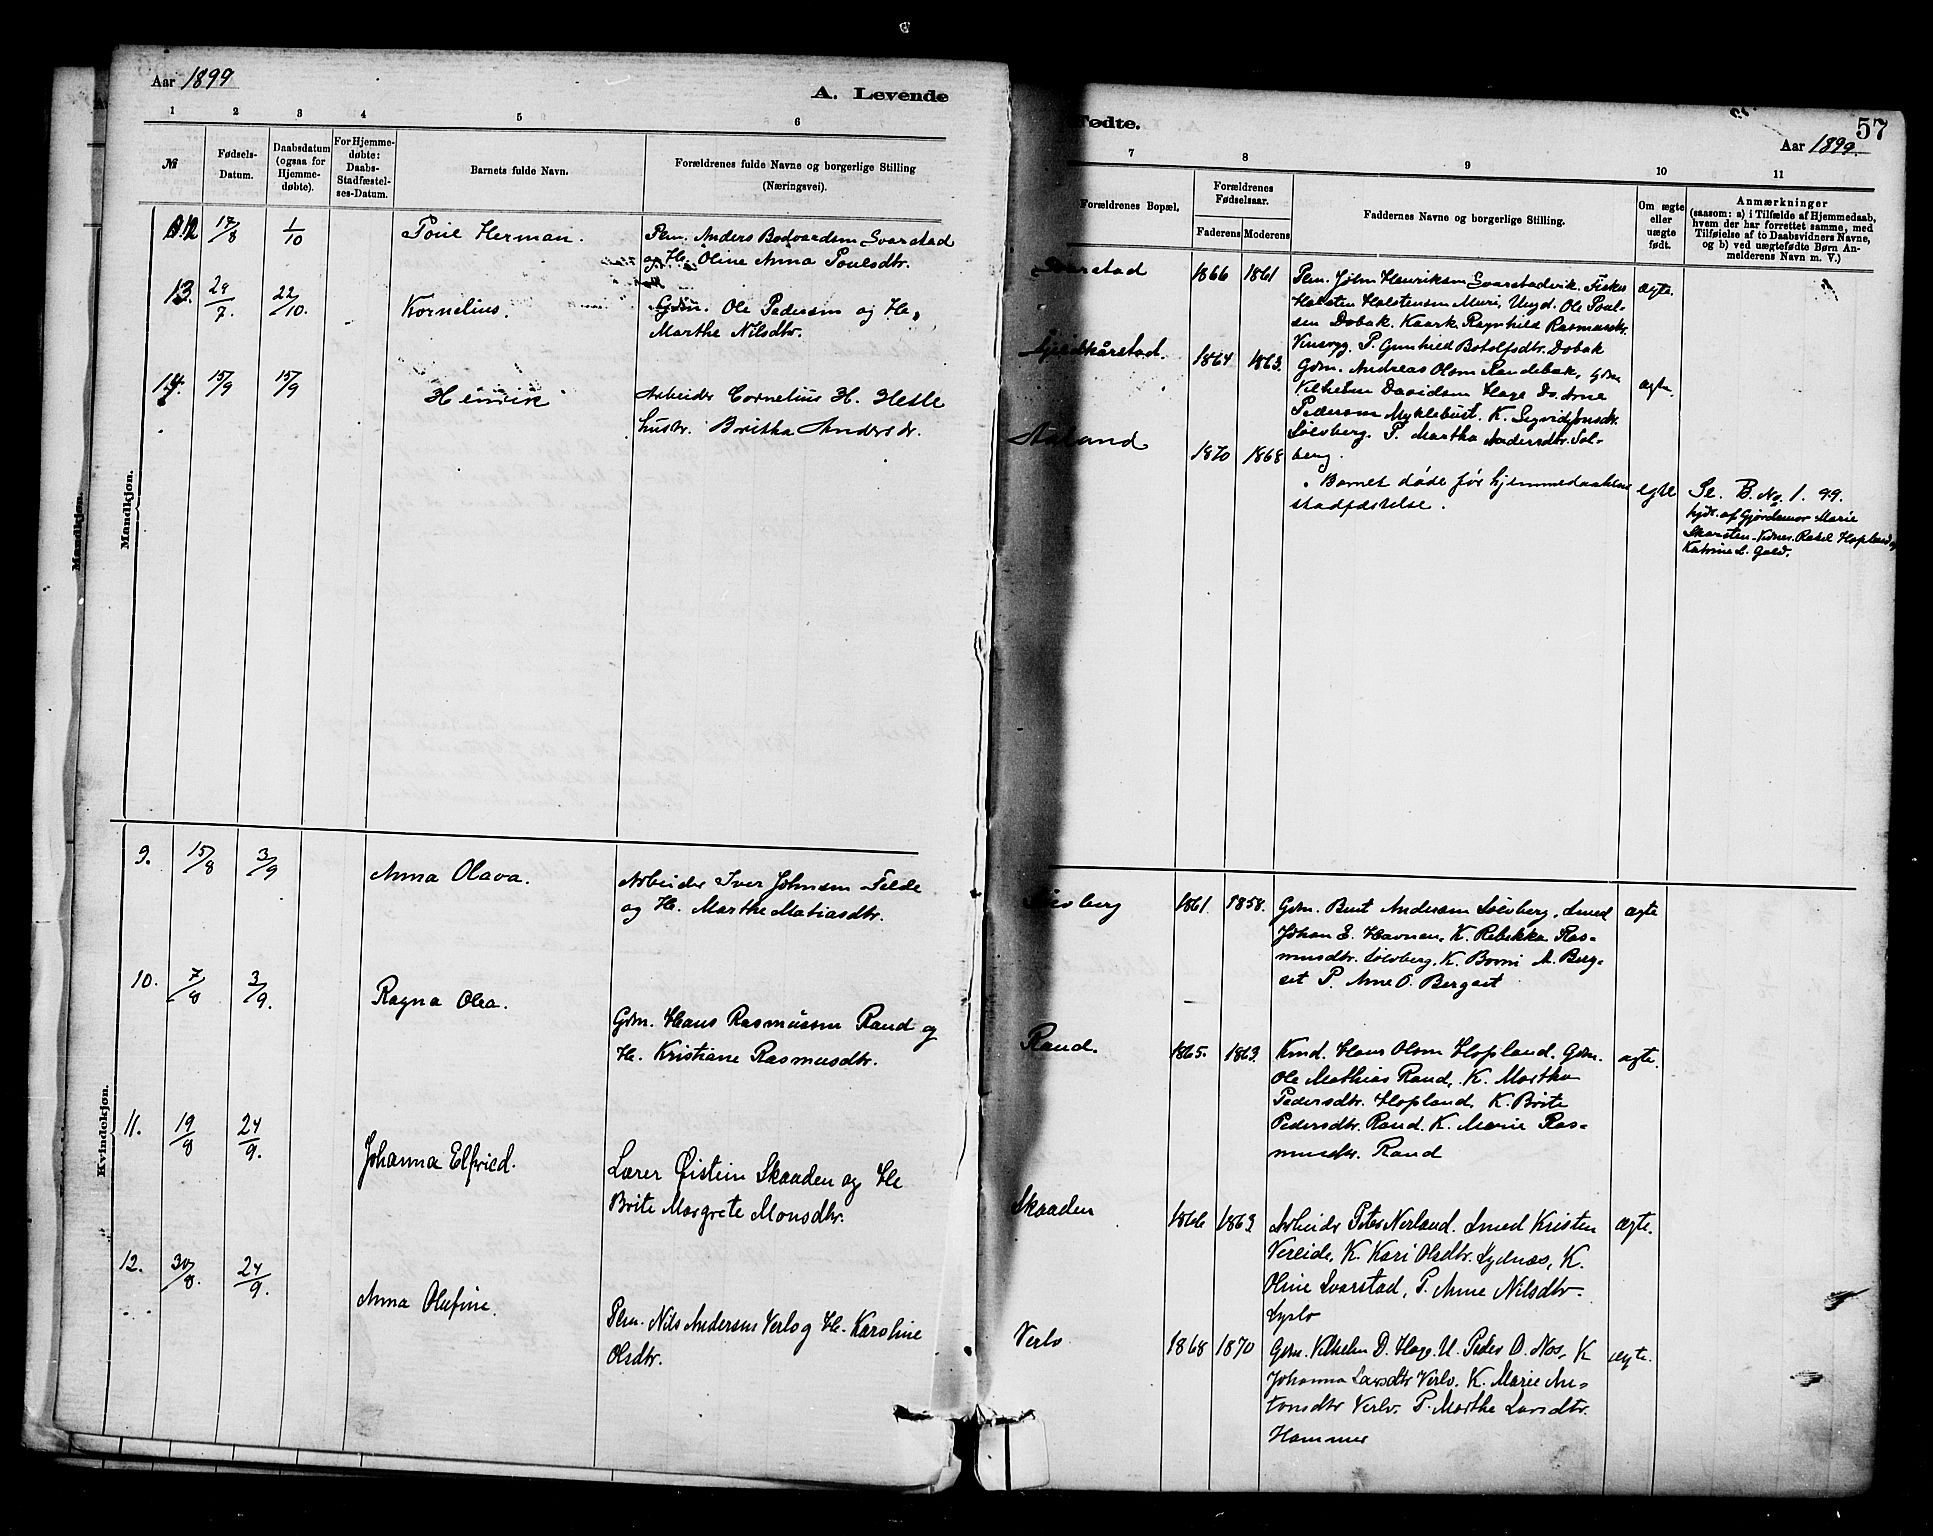 Aar 1899
A. Levende
1 2 3 4 5 6
№
Fødsels-Datum.
Daabsdatum (ogsaa for Hjemmedøbte).
For Hjemmedøbte: Daabs-Stadfæstelses-Datum.
Barnets fulde Navn.
Forældrenes fulde Navne og borgerlige Stilling
(Næringsvei).
Mandkjøn.
Mandkjøn.
12 17/8 1/10 Poul Herman. Plm. Anders Bodvardsen Svarstad
og H. Oline Anna Poulsdtr.
13. 29/7. 22/10. Kornelius. Gdm. Ole Pedersen og H.
Marthe Nilsdtr.
14. 15/9 15/9 Henrik Arbeider Cornelius H. Hesle
hustr. Britha Andersdr.
Kvindekjøn.
9. 15/8 3/9 Anna Olava. Arbeider Iver Johnsen Felde
og H. Marthe Matiasdtr.
10. 7/8 3/9. Ragna Olea.
Gdm. Hans Rasmussen Rand og
H. Kristiane Rasmusdtr.
11. 19/8 24/9. Johanna Elfried. Lærer Øistein Skaaden og H
Brite Margrete Monsdtr.
12. 30/8. 24/9. Anna Olufine.
Plm. Nils Andersen Verlo og H. Karoline
Olsdtr.
Fødte.
57
Aar 1899.
7 8 9 10 11
Forældrenes Bopæl.
Forældrenes Fødselsaar.
Faderens Moderens
Faddernes Navne og borgerlige Stilling.
Om ægte eller uægte født.
Anmærkninger
(saasom: a) i Tilfælde af Hjemmedaab,
hvem der har forrettet samme, med
Tilføielse af to Daabsvidners Navne,
og b) ved uægtefødte Børn Anmelderens Navn m. V.)
Svarstad 1866 1861 Plm. John Henriksen Svarstadvik. Fisker
Holsten Holstensen Muri, Ungd. Ole Poulsen
Dobak. Kaark Ragnhild Rasmusdtr.
P. Gunhild Botolfsdtr. Dobak
ægte.
1864 1863. Gdm. Andreas Olsen Randebak, Gdm
Vilhelm Davidsen Hage Do. Arne
Pedersen Myklebust. K.
Solvberg. P. Martha Andersdtr. Solberg.
ægte.
Aaland 1870 1868
. Barnet døde før hjemmedaabens
stadfæstelse.
egte Se. B. No. 1. 99.
hjdt. af Gjordemor Marie
Skarsten. Vidner. Rakel Hopland og
Katrine L. Gald.
Solvberg 1861. 1858. Gdm. Bent Andersen Solvberg. Smed
Johan E. Havnen, K. Rebekka Rasmusdtr.
Solvberg, K. Borni A. Bergset
P. Arne O. Bergset
ægte
Rand. 1865. 1863. Kmd. Hans Olsen Hopland. Gdm.
Ole Mathias Rand, K. Martha
Pedersdtr. Hopland, K. Brite
Pedersdtr. Rand. K. Marie Rasmusdtr.
Rand
ægte.
Skaaden 1866 1863 Arbeider Peter Nerland. Smed Kristen
Vereide, K. Kari Olsdtr. Sydnæs, K.
Oline Svarstad, P. Anne Nilsdtr
Lyslo
ægte.
Verlo 1868 1870 Gdm. Vilhelm D. Hage. U. Peder O. Nos, K
Johanna Larsdtr Verlo. K. Marie Antonsdtr
Verlo. P. Marthe Larsdtr.
Hammer
ægte.